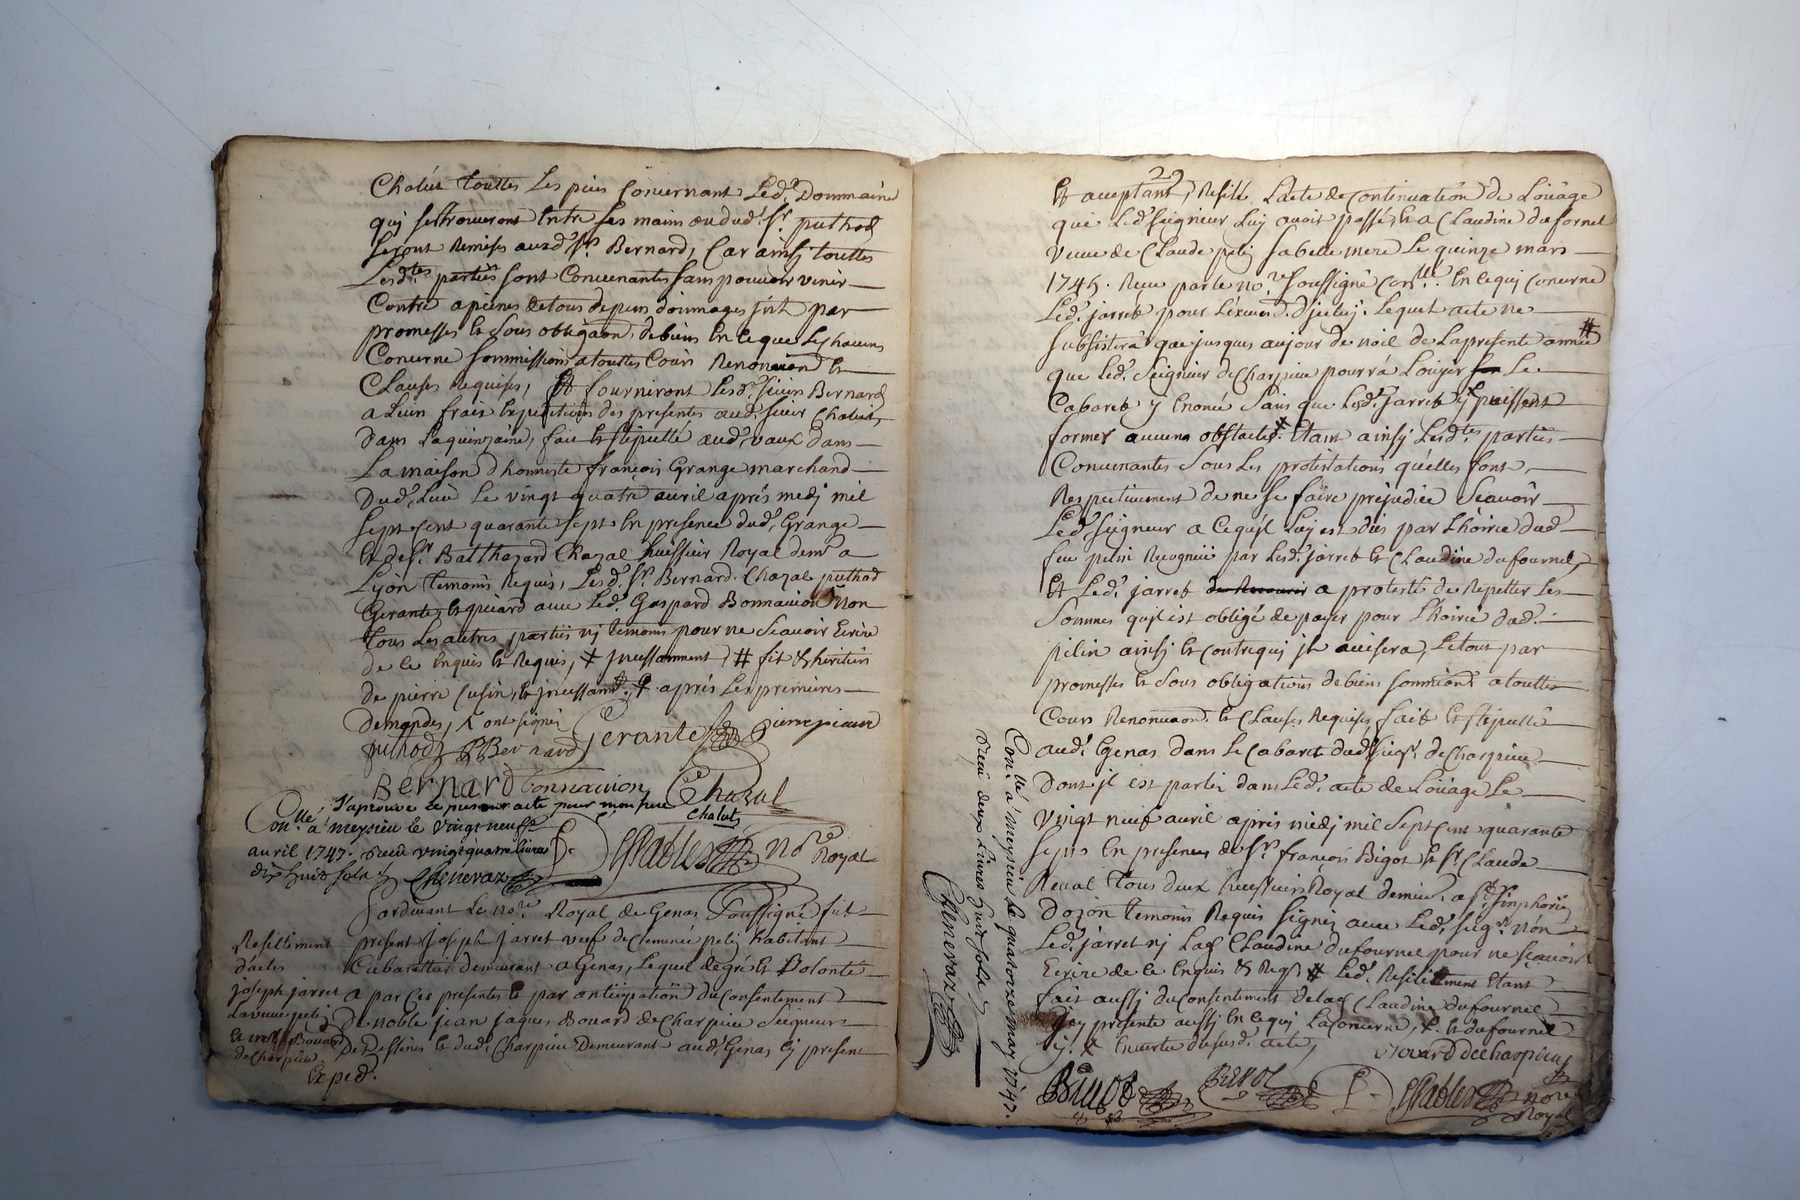 Chalut touttes Les pieces Concernant Led. Dommaine
quj se trouveront Entre les mains dudt. Sr. puthod
seront Remises auxd. Srs. Bernard, Car ainsj touttes
Lesdtes. parties sont Convenantes sans pouvoir venir
Contre a peines de tous depens dommages jnt. par
promesses et sous obligaon. de biens En ce que Les
Concerne sommissions a touttes Cours Renonciaon. et
Clauses Requises, Et fourniront Lesd. sieurs Bernard
a Leurs frais Expeditions des presentes aud. sieur Chalut,
Dans La quinzaine, fait et stipullé aud. vaux dans
La maison d'honneste françois Grange marchand
Dud. Lieu Le vingt quatre avril aprés midj mil
sept Cent quarante sept En presence dud. Grange
et de Sr. Balthazard Chazal huissier Royal demt. a
Lyon temoins Requis, Lesd. Srs. Bernard, Chazal puthod
Gerante, et piéard avec Led. Gaspard Bonnavion Non
tous Les autres parties nj temoins pour ne scavoir Ecrire
de ce Enquis et Requis, + jncessamment # fit & heritiers
de pierre Cusin, et jncessamt. + aprés Les premieres
demandes, + ont signés
puthod Bernard Gerante pierre pieard
Bernard Bonnavion Chazal
J'aprouve le present acte pour mon pere
Chalut
Conllé. a meysieu le vingt neufe
avril 1747. Reçu vingt quatre livres
dix huit sols
Chenevaz
GPables Nore. Royal
Pardevant Le Nore. Royal de Genas Soussigné fut
present Joseph Jarret veuf de Clemence pelin habitant
Cabarettier demeurant a Genas, Lequel de gré et volonté
a par Ces presentes et par anticipation du Consentement
de noble jean jaques Bouard de Charpieu Seigneur
De Dessines et dud. Charpieu Demeurant aud. Genas cy present
Resilliement
d'actes
joseph jarret
La veuve pelin
et noble Bouard
de Charpieu
Exped.
22
Et acceptant, Resilié L'acte de Continuation de Loüage
que Led. seigneur Luy avoit passé, et a Claudine dufornel
veuve de Claude pelin sa belle mere Le quinze mars
1745. Reçu par le nore. soussigné Conllé. En ce quj Concerne
Led. jarret pour L'exceder d'jceluj. Lequel acte ne
subsistera que jusques au jour de noël de La presente année #
que Led. Seigneur de Charpieu pourrá Loüger Le
Cabaret y Enoncé Sans que Lesd. jarret y puissent
former aucuns obstacles + Etant ainsj Lesdtes. parties
Convenantes Sous Les protestations qu'elles font
Respectivement de ne se faire prejudice Scavoir
Led. seigneur a Ce qu'jl Luy est dus par L'hoirie dud.
feu pelin Recognüe par Lesd. jarret et Claudine dufournel,
et Led. jarret a protesté de Repetter Les
Sommes qu'jl est obligé de payer pour L'hoirie dud.
pelin ainsj et Contre quj jl avisera, Le tout par
promesses et sous obligations de biens sommions. a touttes
Cours Renonciaon. et Clauses Requises, fait et stipullé
aud. Genas dans Le Cabaret dud. seigr. de Charpieu
Dont jl est parlé dans Led. acte de Loüage Le
Vingt neuf avril aprés midj mil Sept Cent quarante
Sept En presence de Sr. françois Bigot et Sr. Claude
Reual tous deux huissiers Royal demts. a St. Sinphorien
Dozon temoins Requis signés avec Led. seigr. Non
Led. jarret nj Lad. Claudine dufournel pour ne sçavoir
Ecrire de ce Enquis & Reqs. # Led. Resiliement Etant
fait aussj du Consentement de Lad. Claudine dufournel
jcy presente aussj En ce quj La Concerne, + et dufournel
+ En vertu du susd. acte,
Bouard decharpieu
Bigot
Reual
GPables nore Royal
Conllé. a meysieu le quatorze may 1747.
Reçu deux livres huit sols
Chenevaz